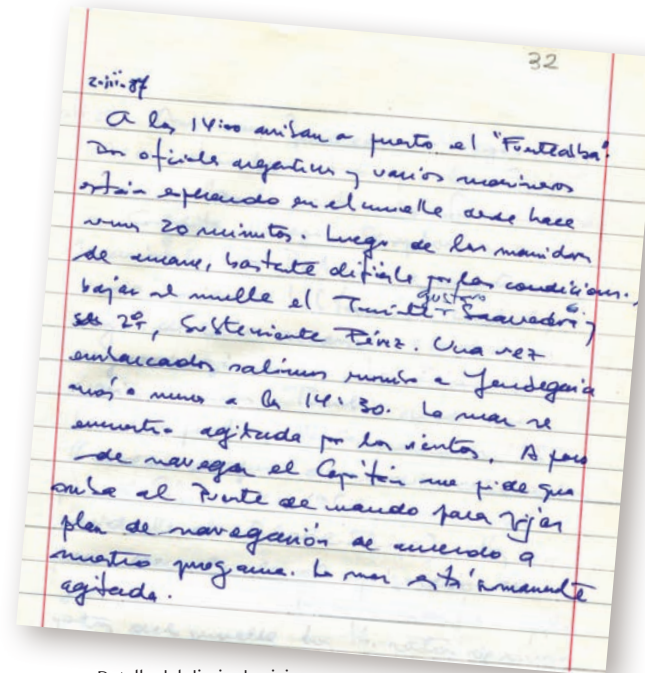 32
2-iii-87
A las 14:00 arriban a puerto el "Fuentealba".
Dos oficiales argentinos y varios marineros
están esperando en el muelle desde hace
unos 20 minutos. Luego de las maniobras
de amarre, bastante difíciles por las condiciones.,
bajan al muelle el Teniente Gustavo Saavedra y
su 2º, Subteniente Pérez. Una vez
embarcados salimos rumbo a Yendegaia
más o menos a las 14:30. La mar se
encuentra agitada por los vientos. A poco
de navegar el Capitán me pide que
suba al Puente de mando para fijar
plan de navegación de acuerdo a
nuestro programa. La mar está sumamente
agitada.